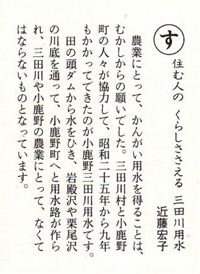 す
住む人の くらしささえる 三田川用水
近藤宏子
農業にとって、かんがい用水を得ることは、
むかしからの願いでした。三田川村と小鹿野
町の人々が協力して、昭和二十五年から九年
もかかってできたのが小鹿野三田川用水です。
田の頭ダムから水をひき、岩殿沢や栗尾沢
の川底を通って、小鹿野町へと用水路が作ら
れ、三田川や小鹿野の農業にとって、なくて
はならないものとなっています。